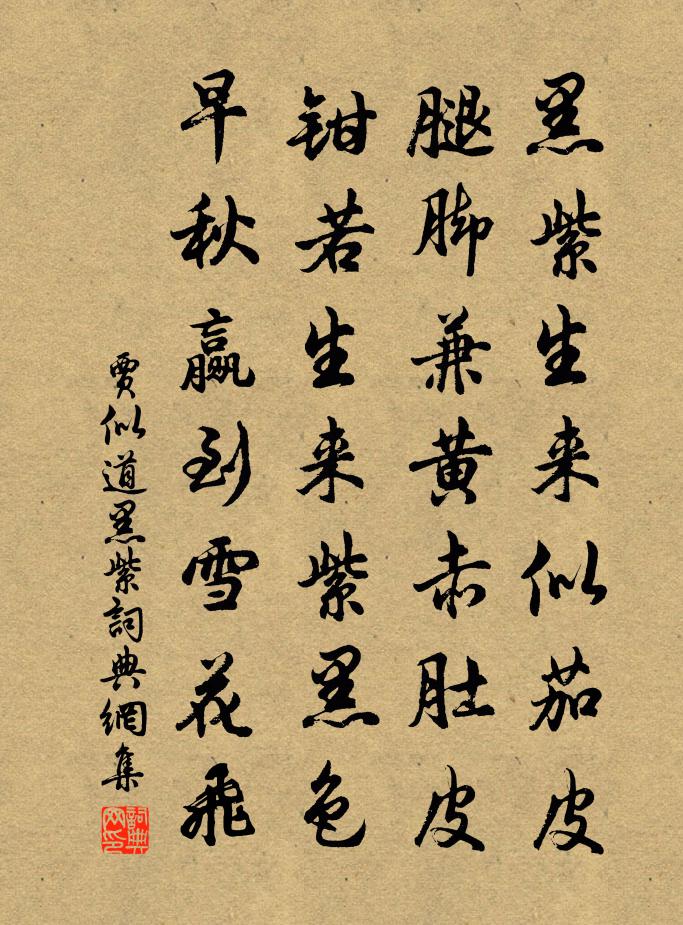 黑紫生来似茄皮
腿脚兼黄赤肚皮
钳若生来紫黑色
早秋赢到雪花飛
賈似道黑紫詞典網集
詞典网印